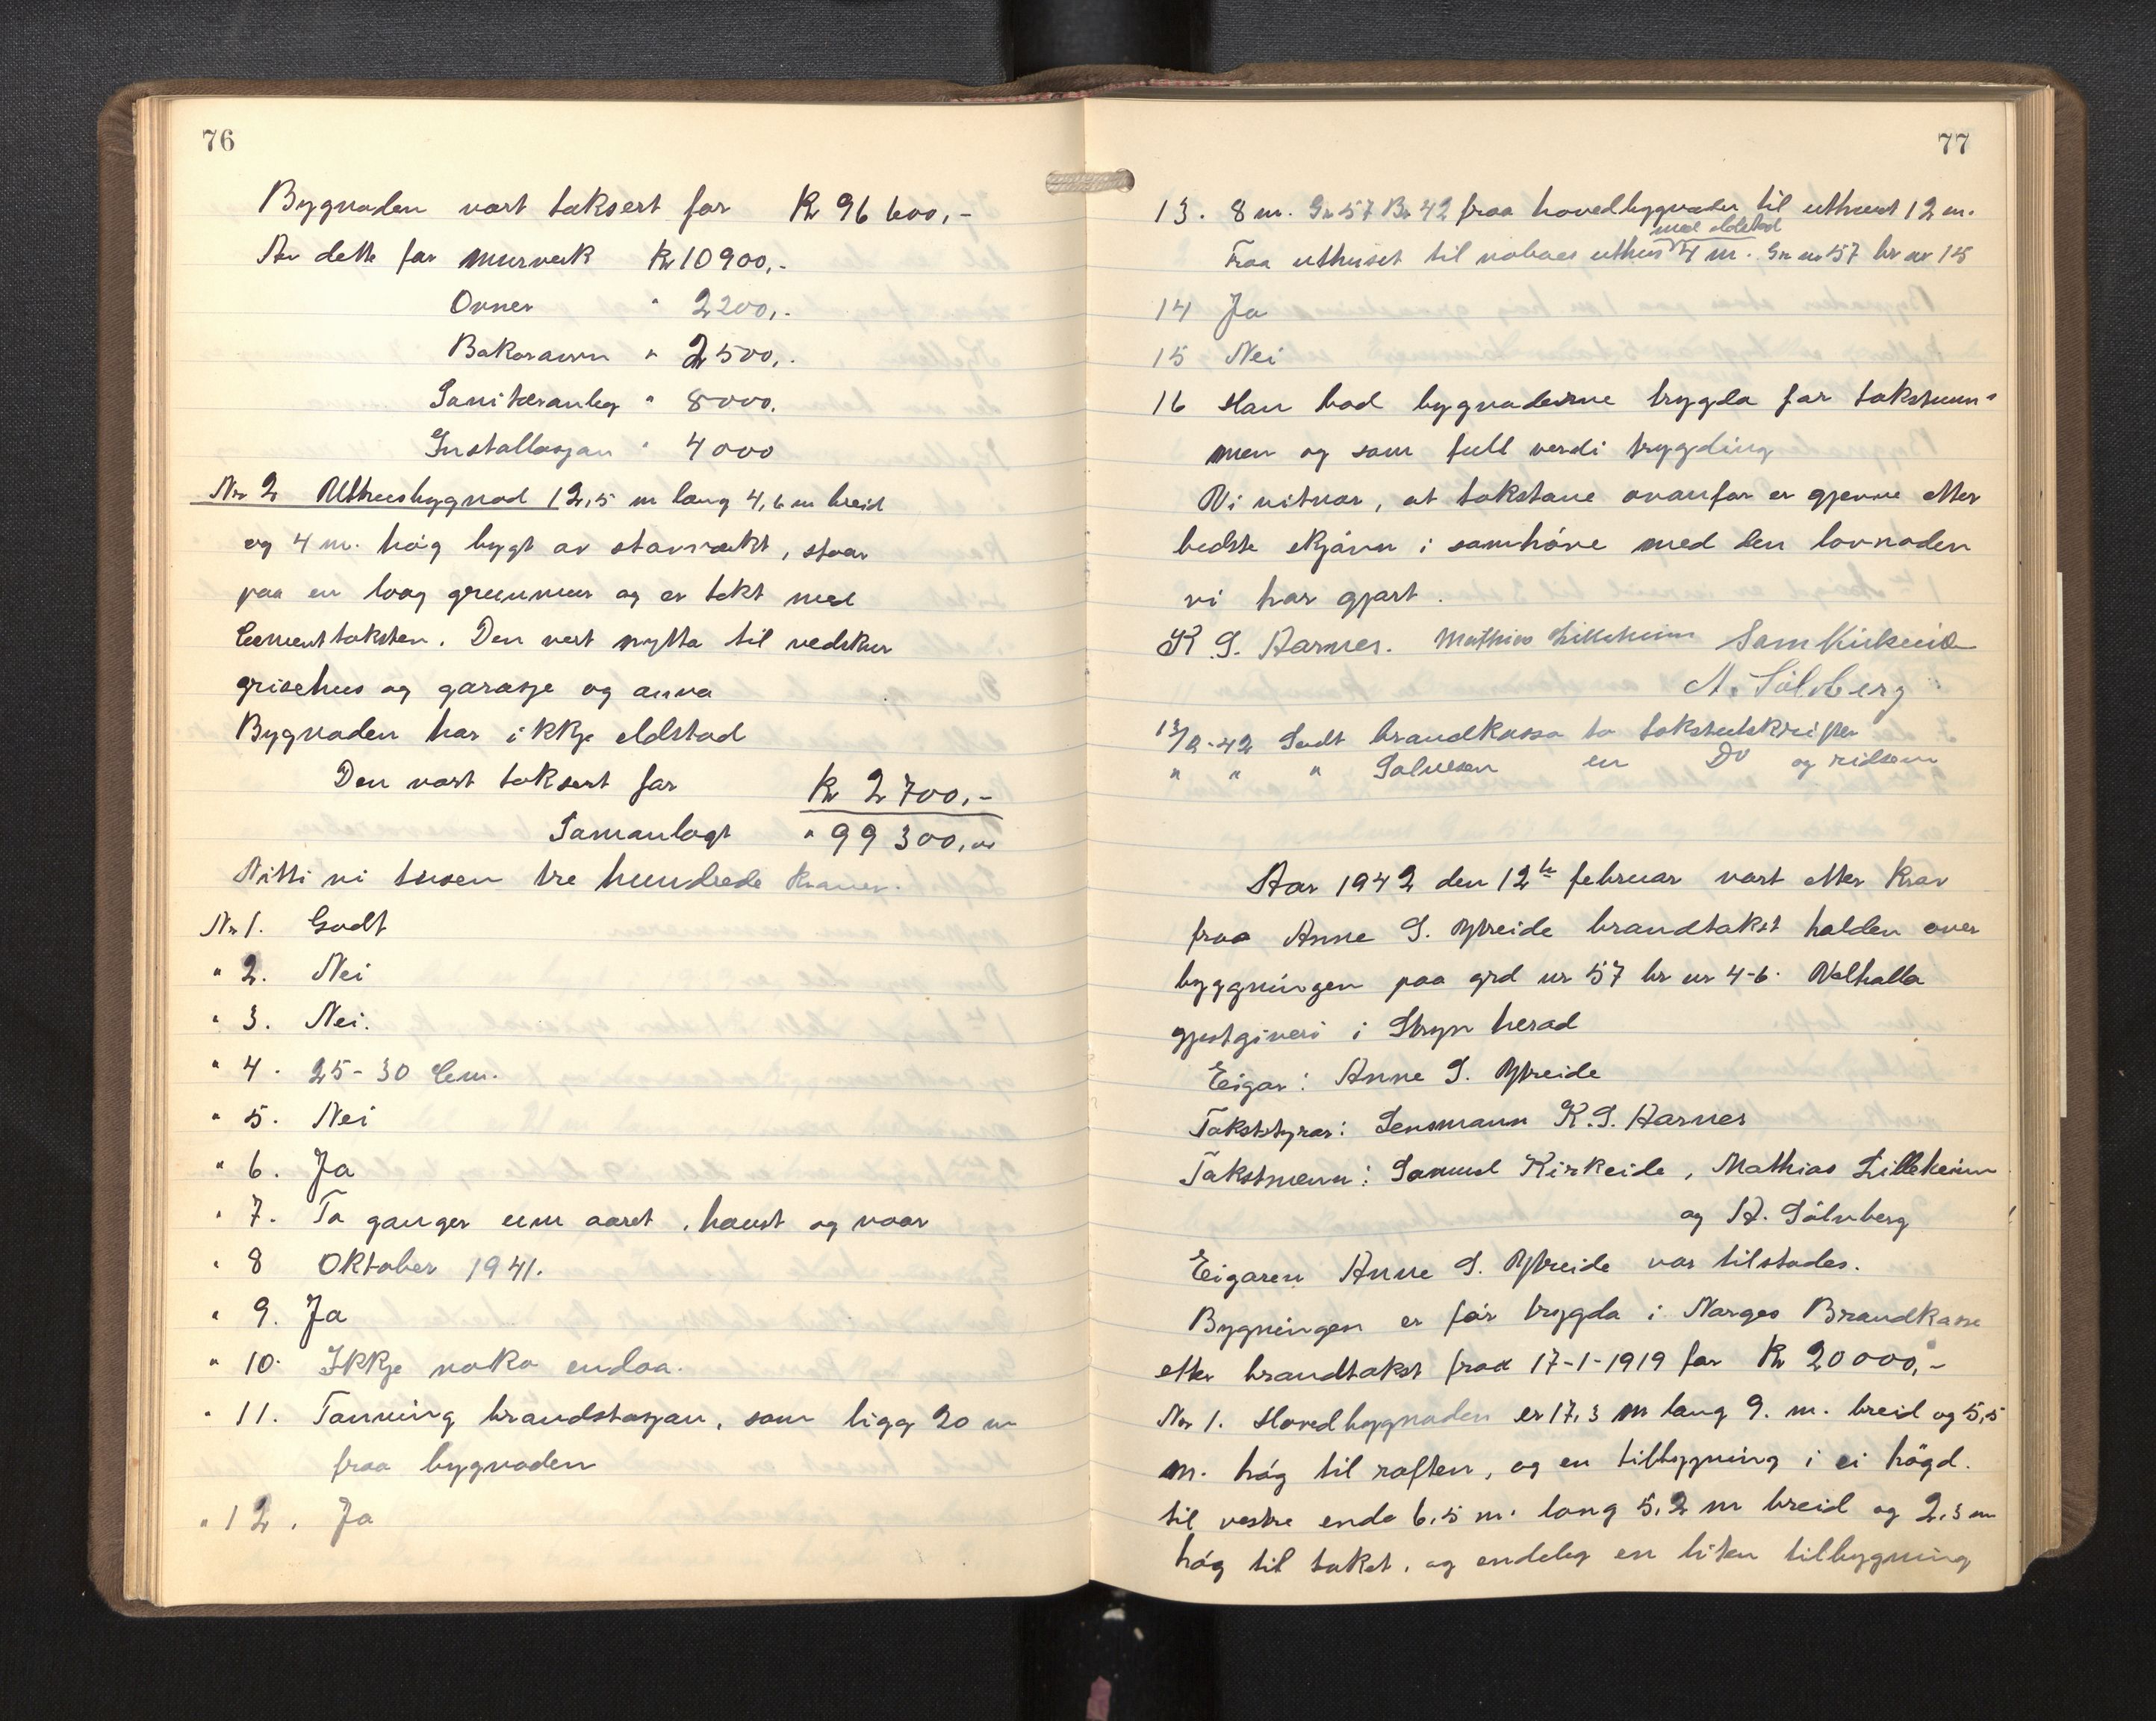 76
Bygnaden vart taksert for Kr 96 600,-
Av dette for murverk Kr 10900,-
Ovner " 2200,-
Bakarovn " 2500,-
Sanitæranleg " 8000,
Installasjon " 4000
Nr 2 Uthusbygnad 12,5 m lang 4,6 m breid
og 4 m. hög bygt av stavverkt, staar
paa en laag grunnmur og er tekt med
Cementtaksten. Den vert nytta til vedskur
grisehus og garasje og anna
Bygnaden har ikkje eldstad
Den vart taksert for Kr 2 700,-
Samanlagt " 99 300,00
Nitti ni tusen tre hundrede kroner.
Nr 1. Godt
" 2. Nei
" 3. Nei.
" 4. 25-30 Cem.
" 5. Nei
" 6. Ja
" 7. To ganger um aaret, haust og vaar
" 8 Oktober 1941.
" 9. Ja
" 10. Ikkje noko endaa.
" 11. Tonning brandstasjon, som ligg 20 m
fraa bygnaden
" 12. Ja
77
13. 8 m. Gr 57 Br 42 fraa hovedbygnaden til uthuset 12 m.
med eldstad
Fraa uthuset til naboes uthus 4 m. Gr nr 57 br nr 15
14 Ja
15 Nei
16 Han bad bygnaderne trygda for takstsum-
men og som full verdi trygding
Vi vitnar, at takstane ovanfor er gjevne etter
bedste skjönn i samhöve med den lovnaden
vi har gjort.
K. S. Aarnes. Mathias Lilleheim Sam Kirkeide
A. Sölvberg
13/2-42 Sendt brandkassa to takstutskrifter
" " " Salvesen en Do og ridsem
Aar 1942 den 12te februar vart etter krav
fraa Anne S. Ytreide brandtakst halden over
byggningen paa grd nr 57 br nr 4-6. Valhalla
gjestgiveri i Stryn herad
Eigar: Anne S. Ytreide
Takststyrar: Lensmann K. S. Aarnes
Takstmenn: Samuel Kirkeide, Mathias Lilleheim
og A. Sölvberg
Eigaren Anne S. Ytreide var tilstades.
Bygningen er för trygda i Norges Brandkasse
etter brandtakst fraa 17-1-1919 for Kr 20 000,-
Nr 1. Hovedbygnaden er 17,3 m lang 9. m. breid og 5,5
m. hög til raften, og en tilbygning i ei högd.
til vestre ende 6,5 m. lang 5,2 m breid og 2,3 m
hög til taket, og endeleg en liten tilbygning